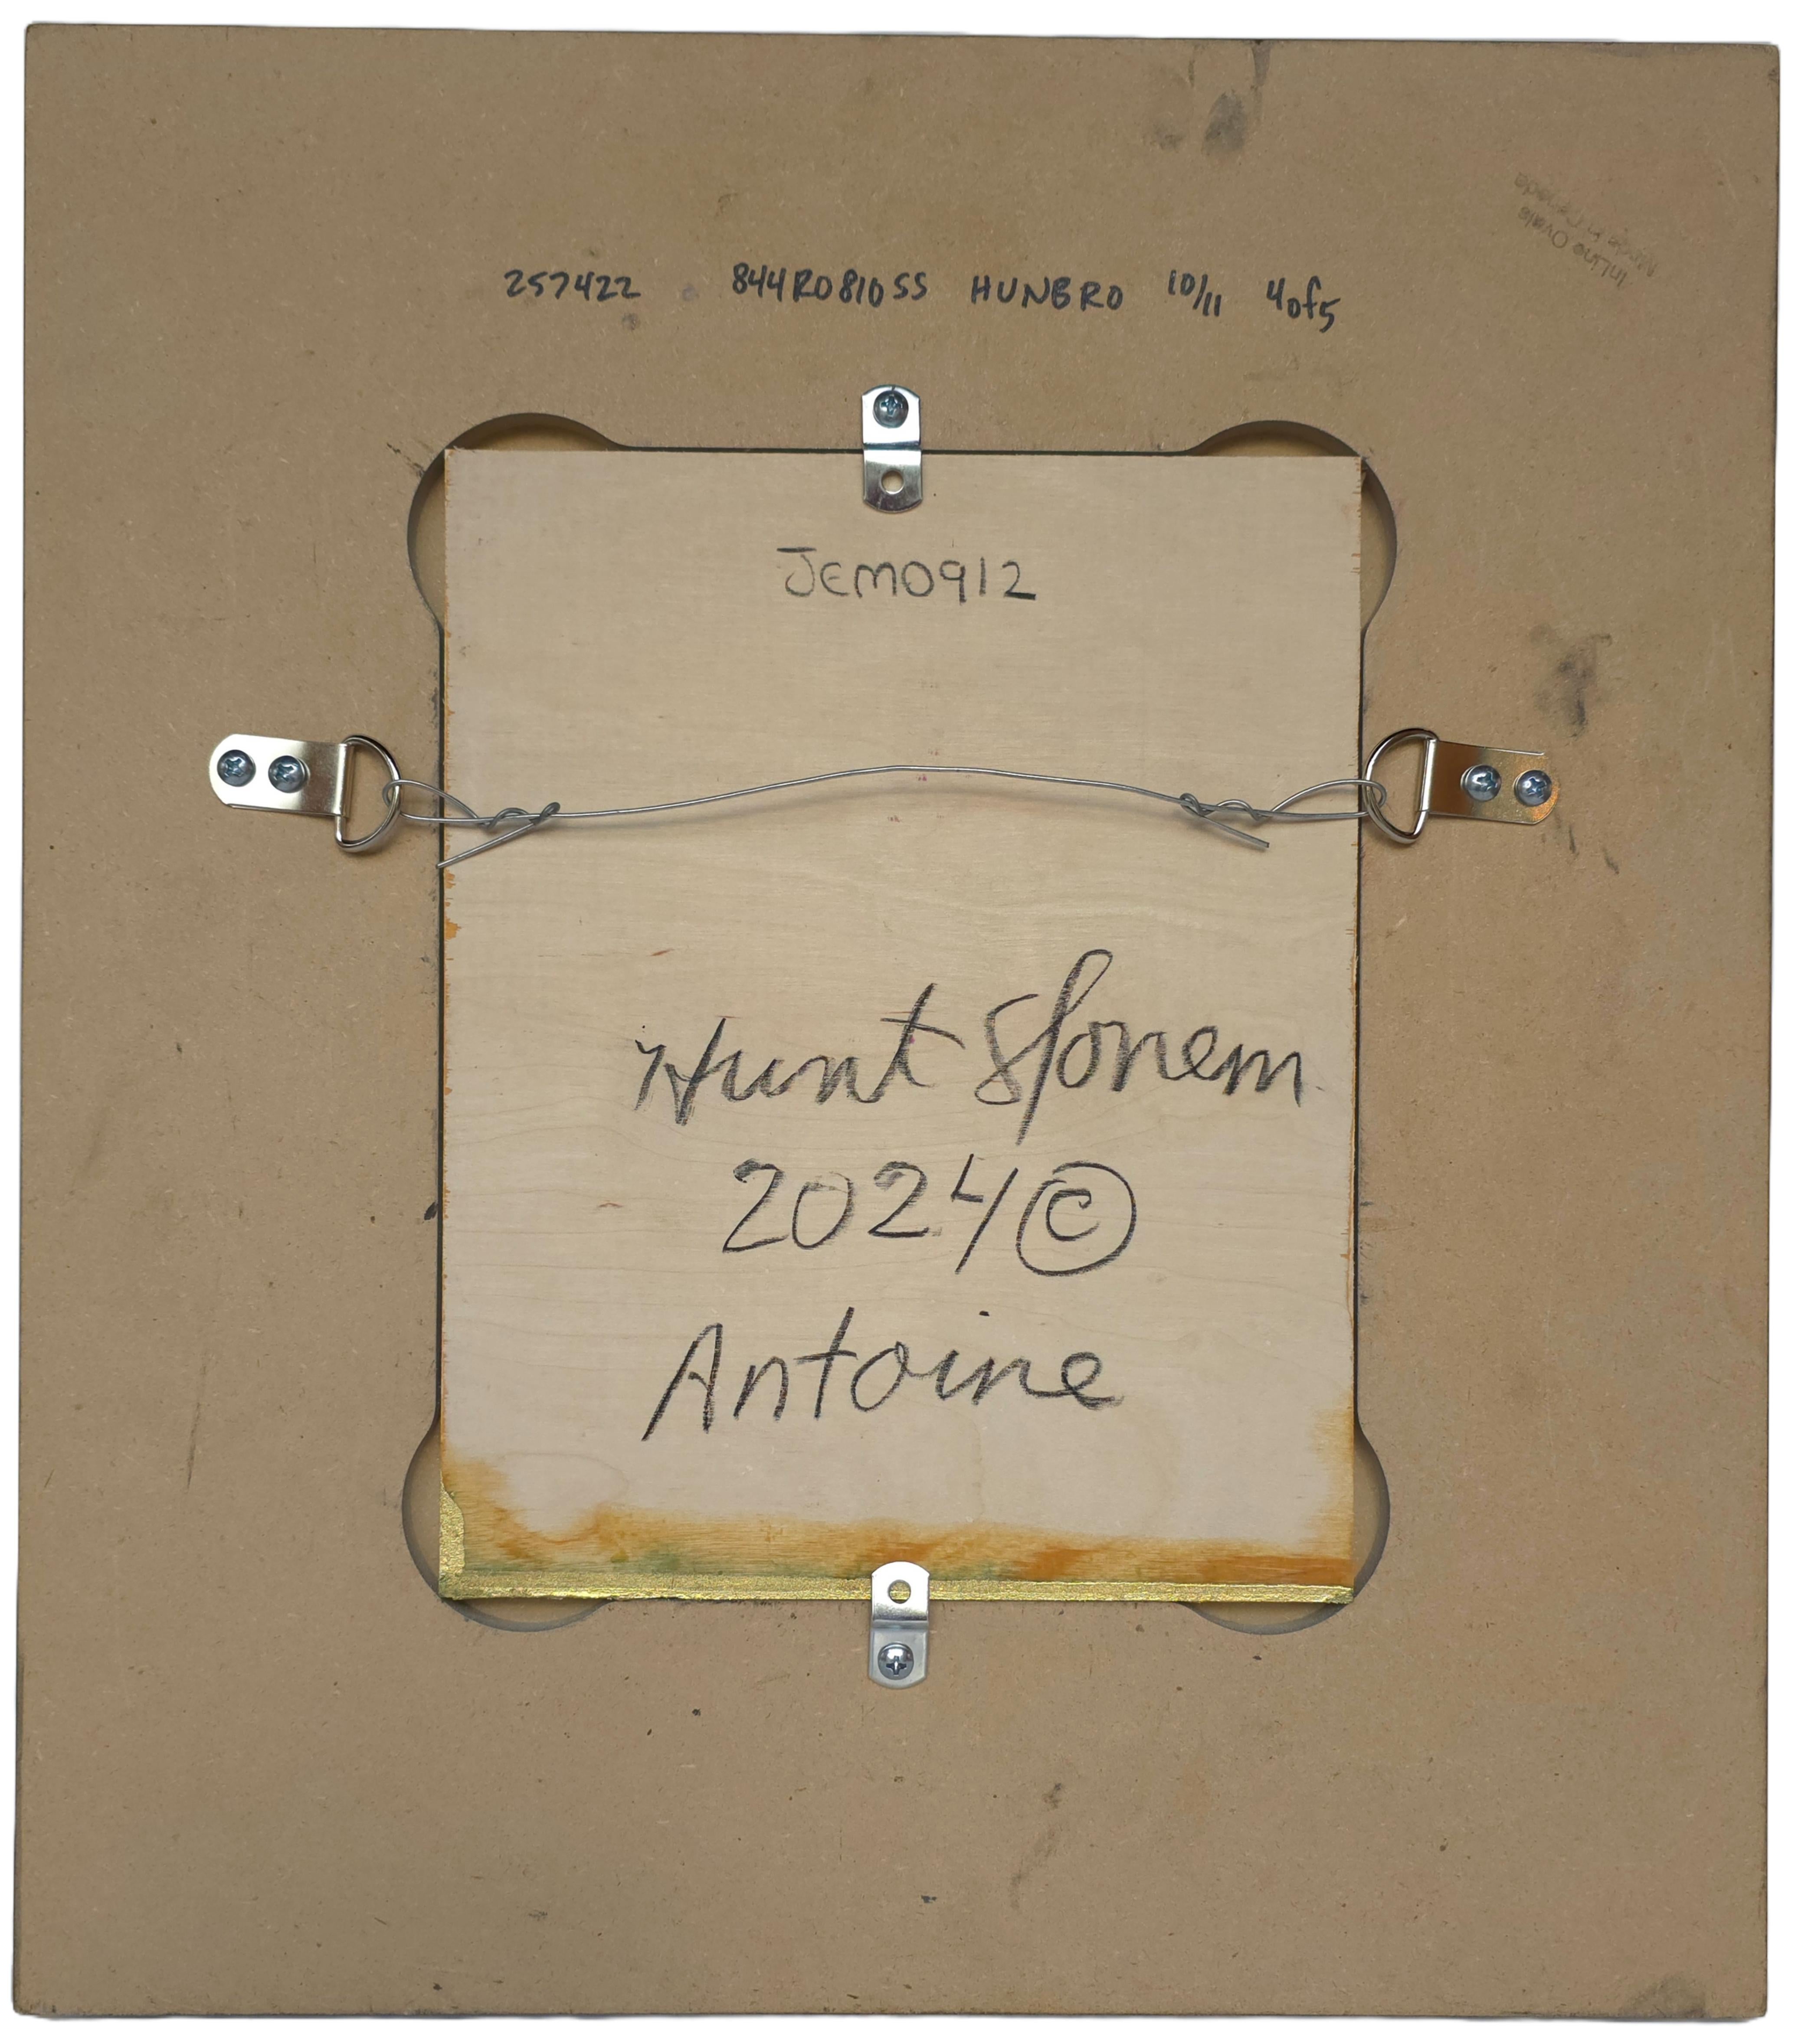 InLine Ovals
Made in Canada
257422 844RO810SS HUNBRO 10/11 4of5
JEM0912
Hunt Slonem
2024©
Antoine